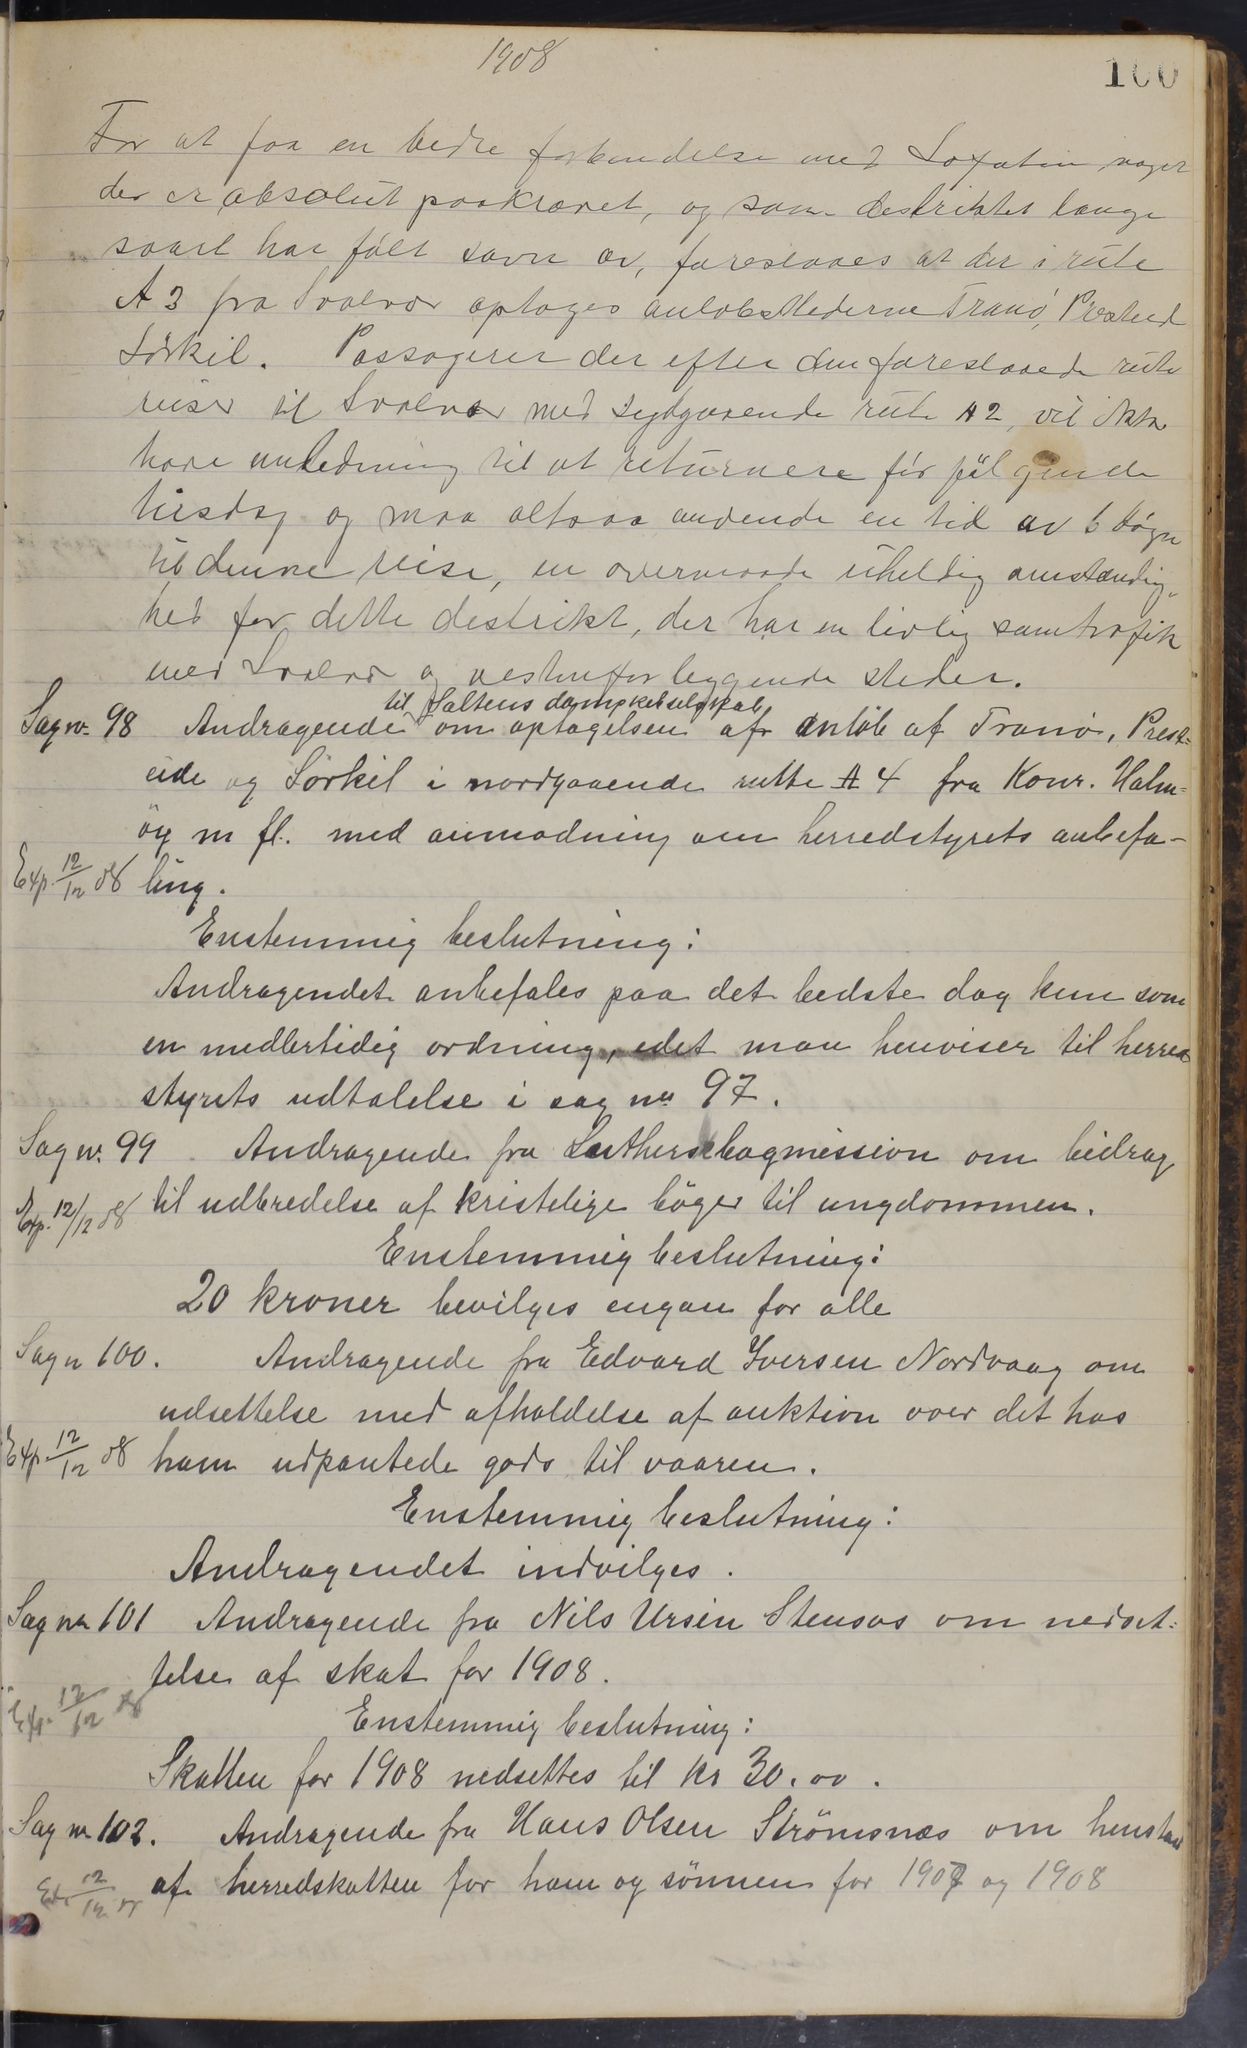 1908
100
For at faa en bedre forbindelse med Lofoten noget
der er absolut paakrævet, og som destriktet længe
saart har følt savn av, foreslaaes at der i rute
A 3 fra Svolvær optages anløbsstederne Tranø, Presteid
Sørkil. Passagerer der efter den foreslaaede rute
reiser til Svolvær med sydgaaende rute A 2, vil ikke
have anledning til at returnere før følgende
tirsdag og maa altsaa anvende en tid av 6 døgn
til denne reise, en overmaade uheldig omstændig-
hed for dette destrikt, der har en livlig samtrafik
med Svolvær og vestenfor liggende steder.
til Saltens dampskibsselskab
Sag nr. 98 Andragende om optagelsen af anløb af Tranø, Prest-
eide og Sørkil i nordgaaende rutte A 4 fra Konr. Halm-
øy m fl. med anmodning om herredstyrets anbefa-
Exp. 12/12 08 ling.
Enstemmig beslutning:
Andragendet anbefales paa det bedste dog kun som
en midlertidig ordning, idet man henviser til herred
styrets udtalelse i sag nr 97.
Sag nr. 99 Andragende fra Lutherbogmission om bidrag
Exp. 12/12 08 til udbredelse af kristelige bøger til ungdommen.
Enstemmig beslutning:
20 kroner bevilges engan for alle
Sag n 100. Andragende fra Edvard Iversen Nordvaag om
udsettelse med afholdelse af auktion over det hos
Exp. 12/12 08 ham udpantede gods til vaaren.
Enstemmig beslutning:
Andragendet indvilges.
Sag nr 101 Andragende fra Nils Ursin Stensås om nedset-
telse af skat for 1908.
Exp. 12/12 08
Enstemmig beslutning:
Skatten for 1908 nedsettes til kr 30.00.
Sag nr 102. Andragende fra Hans Olsen Strömsnæs om henstand
Exp 12/12 08 af herredskatten for ham og sønnen for 1907 og 1908